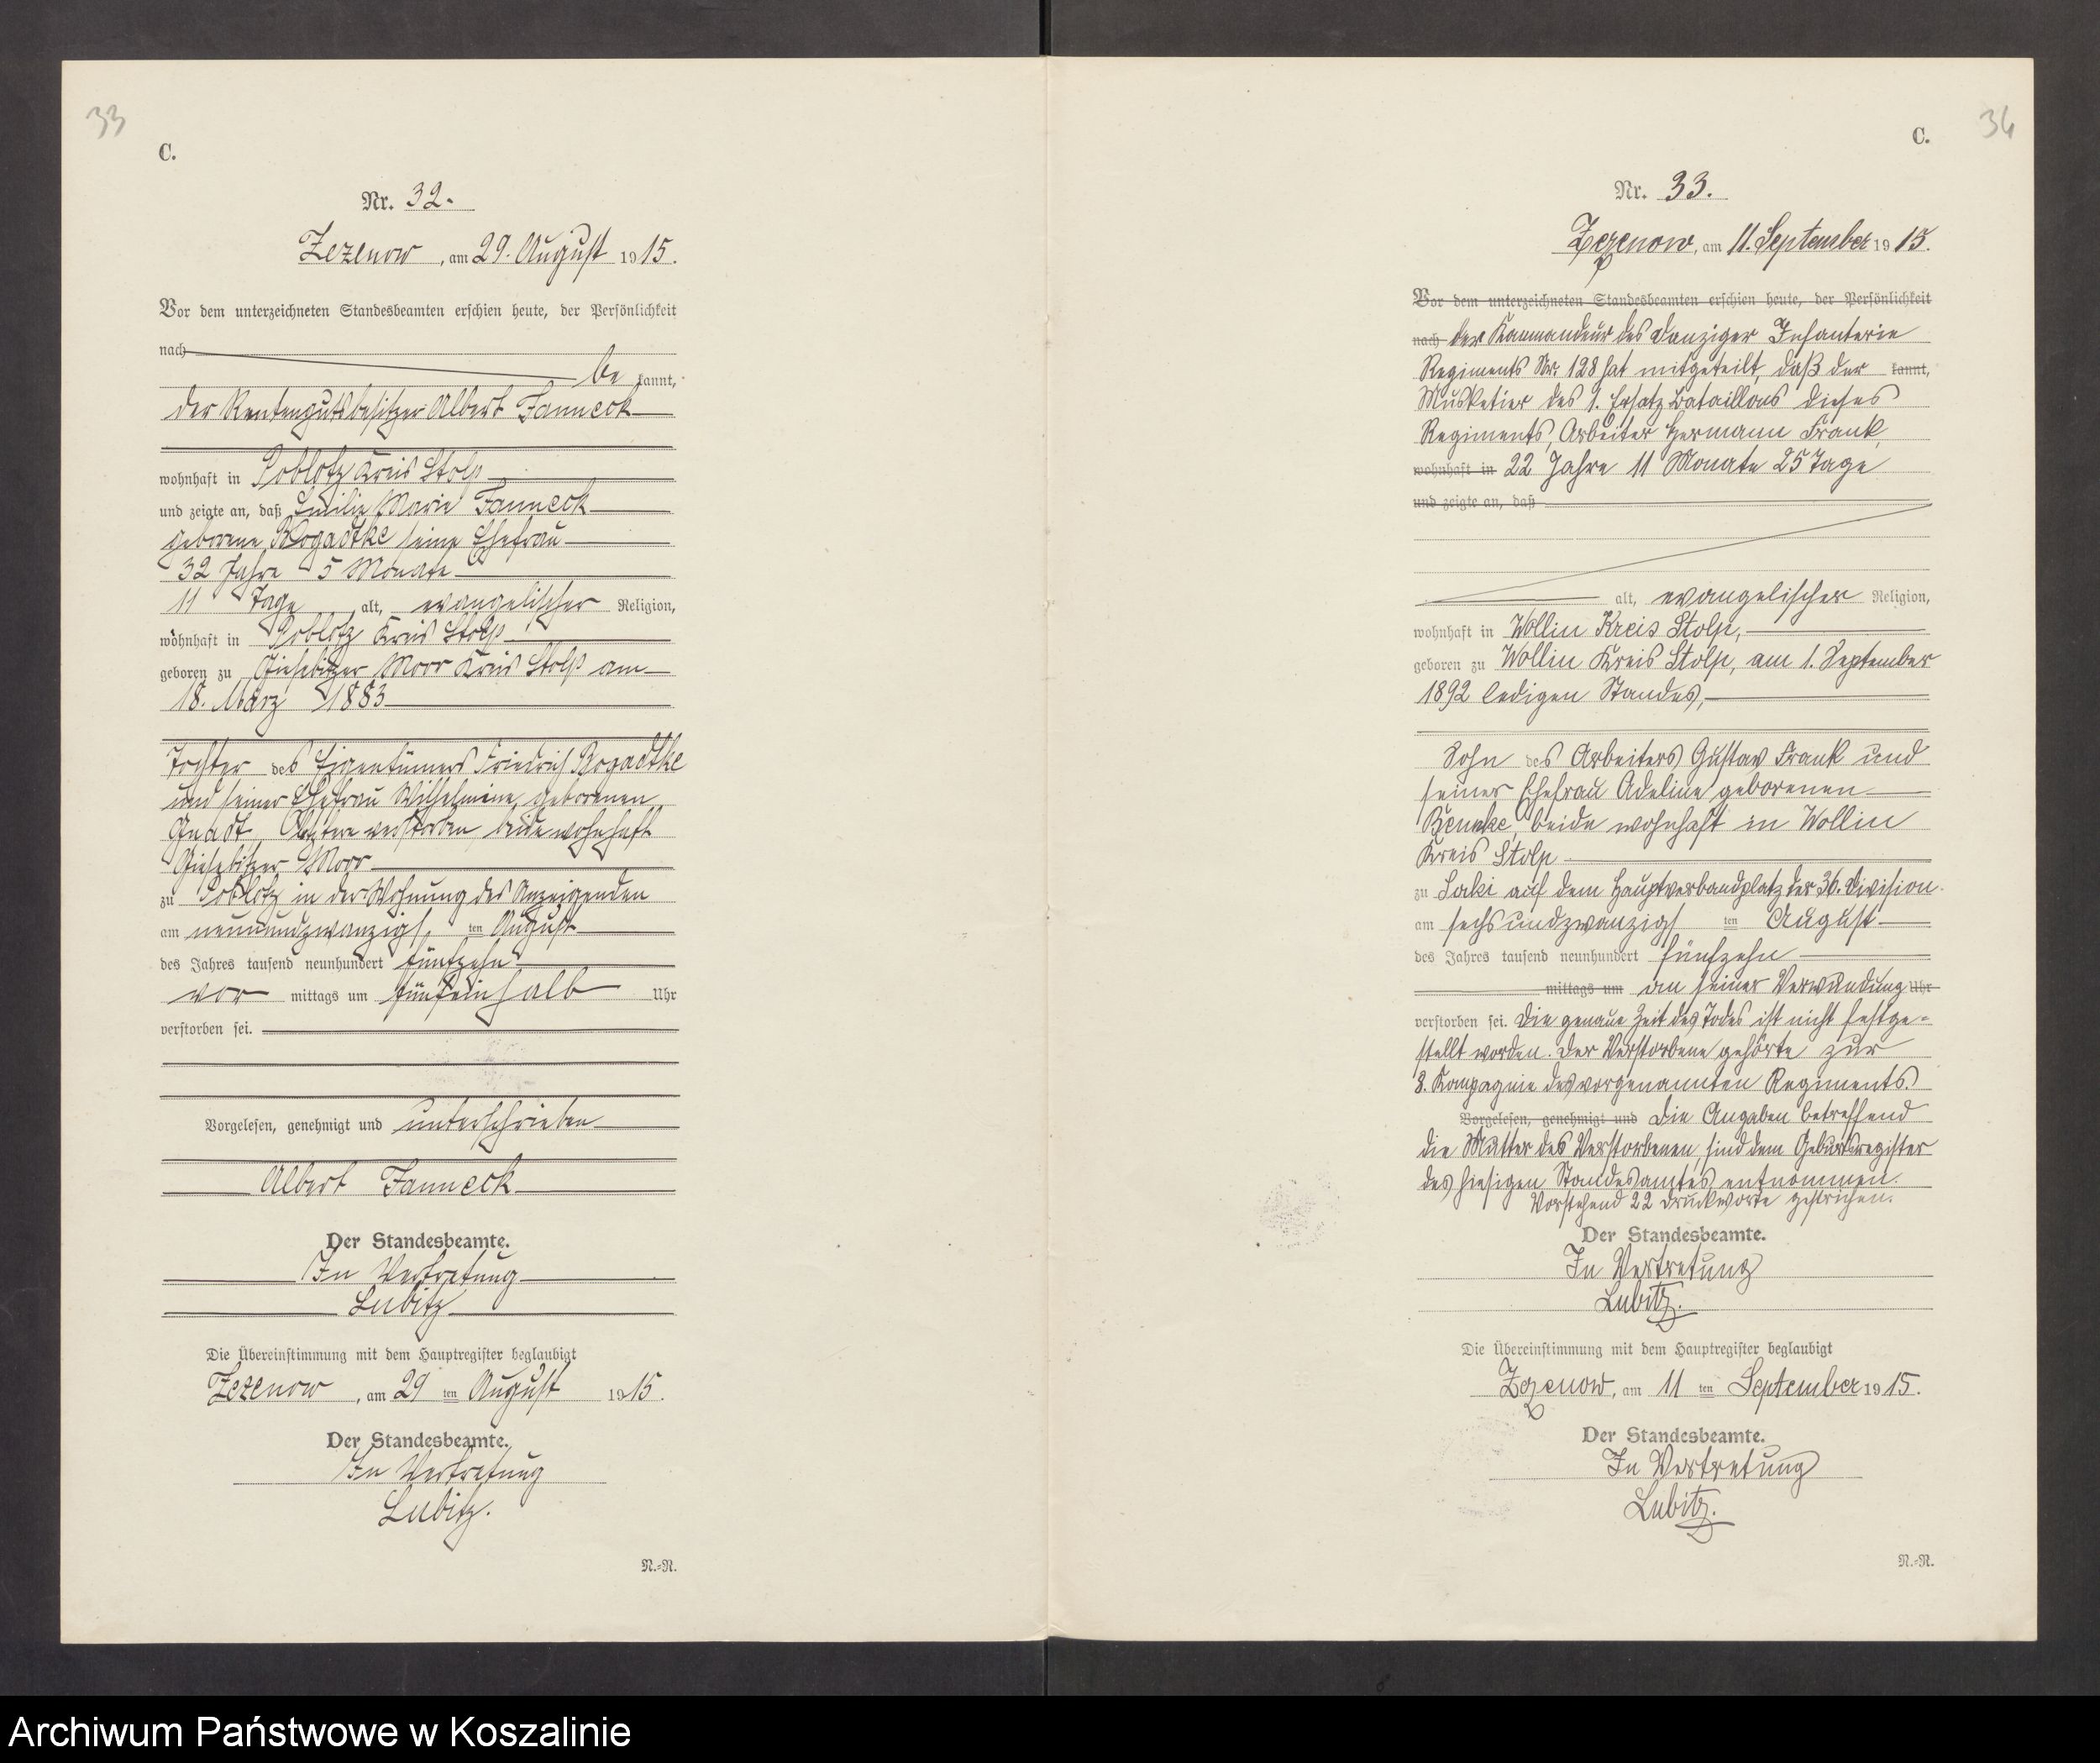 33
C.
Nr. 32.
Zezenow, am 29. August 1915.
Vor dem unterzeichneten Standesbeamten erschien heute, der Persönlichkeit
nach
be kannt,
der Rentengutsbesitzer Albert Janneck
wohnhaft in Poblotz Kreis Stolp
und zeigte an, daß Emilie Marie Janneck
geborene Rogadtke seine Ehefrau
32 Jahre 5 Monate
11 Tage alt, evangelischer Religion,
wohnhaft in Poblotz Kreis Stolp
geboren zu Giesebitzer Moor Kreis Stolp am
18. März 1883
Tochter des Eigentümers Friedrich Rogadtke
und seiner Ehefrau Wilhelmine, geborenen
Gnadt, verstorben, beide wohnhaft
Giesebitzer Moor
zu Poblotz in der Wohnung des Anzeigenden
am neunundzwanzigsten August
des Jahres tausend neunhundert fünfzehn
vor mittags um fünfeinhalb Uhr
verstorben sei.
Vorgelesen, genehmigt und unterschrieben
Albert Janneck
Der Standesbeamte.
In Vertretung
Lubitz
Die Übereinstimmung mit dem Hauptregister beglaubigt
Zezenow, am 29 ten August 1915.
Der Standesbeamte.
In Vertretung
Lubitz.
N.=N.
34
C.
Nr. 33.
Zezenow, am 11. September 1915.
Vor dem unterzeichneten Standesbeamten erschien heute, der Persönlichkeit
nach der Kommandeur des Danziger Infanterie
Regiments Nr. 128 hat mitgeteilt, daß der kannt,
Musketier des 1. Ersatz Bataillons dieses
Regiments, Arbeiter Hermann Frank,
wohnhaft in 22 Jahre 11 Monate 25 Tage
und zeigte an, daß
alt, evangelischer Religion,
wohnhaft in Wollin Kreis Stolp,
geboren zu Wollin Kreis Stolp, am 1. September
1892 ledigen Standes,
Sohn des Arbeiters Gustav Frank und
seiner Ehefrau Adeline geborenen
beide wohnhaft in Wollin
Kreis Stolp
zu Saki auf dem Hauptverbandplatz der 36. Division
am sechsundzwanzigsten August
des Jahres tausend neunhundert fünfzehn
mittags um an seiner Verwundung Uhr
verstorben sei. Die genaue Zeit des Todes ist nicht festge=
stellt worden. Der Verstorbene gehörte zur
8. Kompagnie des vorgenannten Regiments.
Vorgelesen, genehmigt und Die Angaben betreffend
die Mutter des Verstorbenen, sind dem Geburtsregister
des hiesigen Standesamtes entnommen.
Vorstehend 22 Druckworte gestrichen.
Der Standesbeamte.
In Vertretung
Lubitz.
Die Übereinstimmung mit dem Hauptregister beglaubigt
Zezenow, am 11 ten September 1915.
Der Standesbeamte.
In Vertretung
Lubitz.
N.=N.
Archiwum Państwowe w Koszalinie